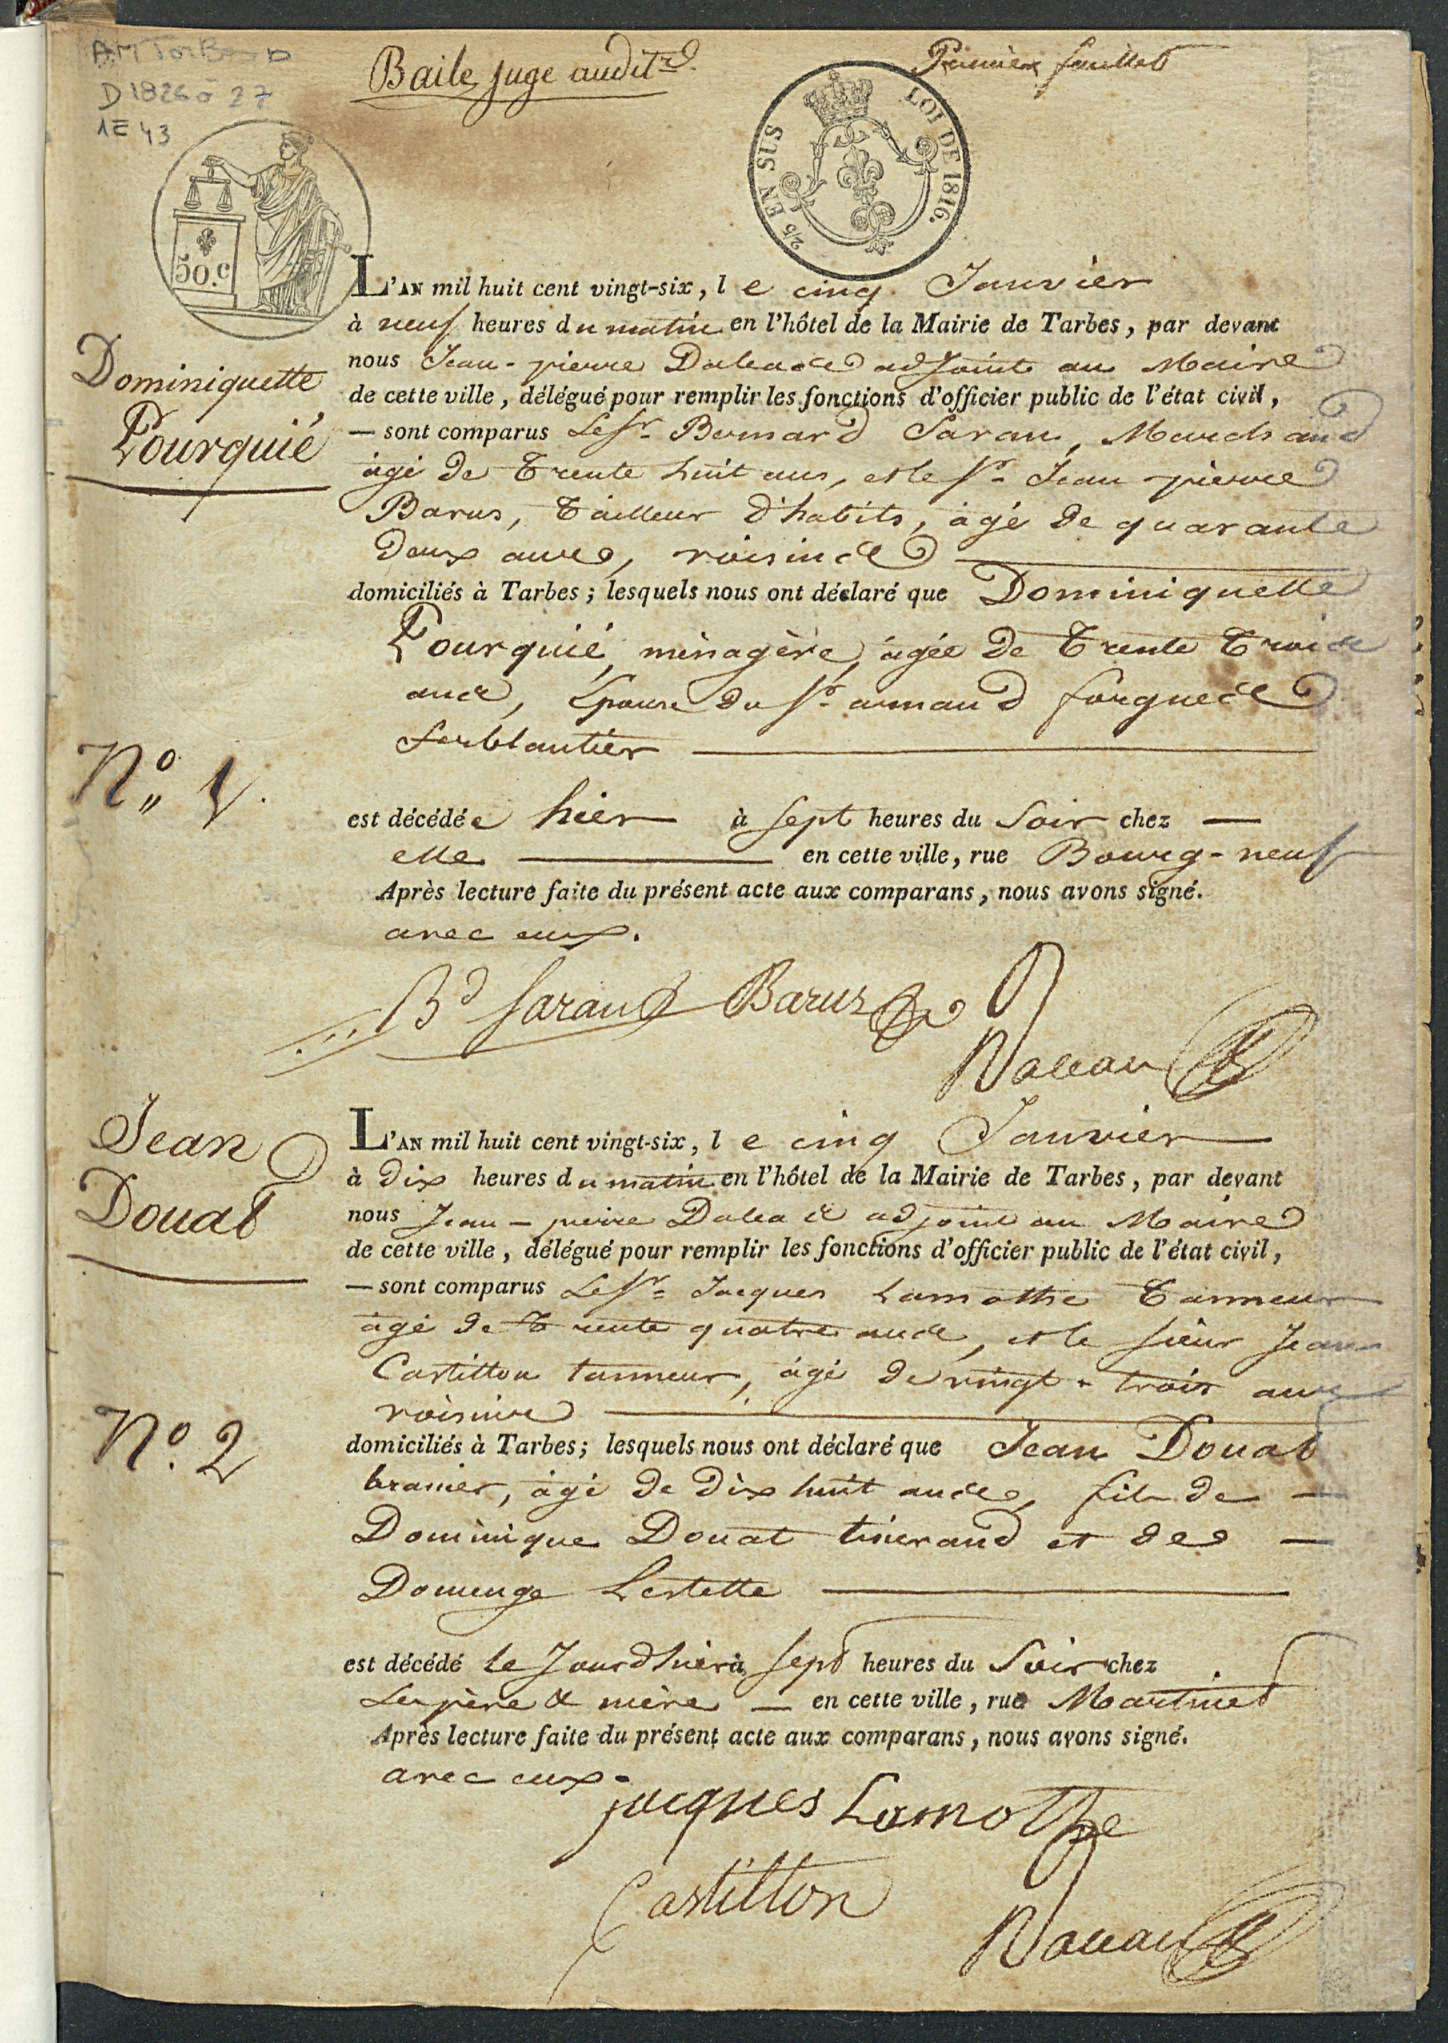 AM Tarbes
D 1826 à 27
1E 43
Baile, juge audit.r
Premier feuillet
2/5 EN SUS
LOI DE 1816.
50.c
L'AN mil huit cent vingt-six, le cinq Janvier
à neuf heures du matin en l'hôtel de la Mairie de Tarbes, par devant
nous Jean-pierre Daleas adjoint au Maire
de cette ville, délégué pour remplir les fonctions d'officier public de l'état civil,
— sont comparus Le Sr. Bernard Saran, Marchand
âgé de trente huit ans, et le Sr. Jean pierre
Barus, tailleur d'habits, âgé de quarante
deux ans, voisins
domiciliés à Tarbes; lesquels nous ont déclaré que Dominiquette
Pourquié, ménagère, agée de trente trois
ans, Epouse du Sr. arnaud forgues
ferblantier
est décédée hier à sept heures du Soir chez
elle en cette ville, rue Bourg-neuf
Après lecture faite du présent acte aux comparans, nous avons signé.
avec eux.
Dominiquette
Pourquié
No. 1.
Bd Saran Barus
Daleas
L'AN mil huit cent vingt-six, le cinq Janvier
à dix heures du matin en l'hôtel de la Mairie de Tarbes, par devant
nous Jean-pierre Daleas adjoint au Maire
de cette ville, délégué pour remplir les fonctions d'officier public de l'état civil,
— sont comparus Le Sr. Jacques Lamothe tanneur
âgé de trente quatre ans, et le sieur Jean
Castillon tanneur, âgé de vingt-trois ans
voisins
domiciliés à Tarbes; lesquels nous ont déclaré que Jean Douat
brassier, âgé de dix huit ans, fils de
Dominique Douat tisserand et de
Domenge Lestelle
est décédé le Jour d'hier à sept heures du Soir chez
Ses père & mère en cette ville, rue Martinet
Après lecture faite du présent acte aux comparans, nous avons signé.
avec eux.
Jean
Douat
No. 2
jacques Lamothe
Castillon
Daleas